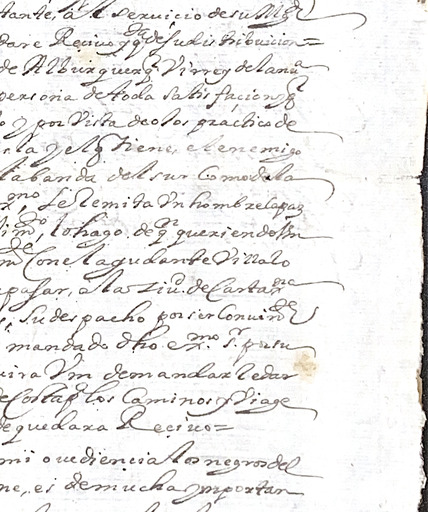 tante, a el servicio de su Mgd
dare Recivo y qta de su distribuicion =
de Alburquerq Virrey de la nu
persona de toda satisfacion, q
o y por Vista de ojos practico de
rla y el q tiene, el enemigo
la banda del sur como de la
xmo, se remita Un hombre capaz
lo hago. de qn queriendo Un
Con el ayudante Villalo
pasar, a la Ziud. de Cartaxna
, su despacho por ser Convinde
mandado dho exmo. Sr. pa su
uira Vm de mandar le dar
de Costa pa los Caminos y Viage
de quedara Recivo =
mi ovediencia los negros del
ne, es de mucha ymportan